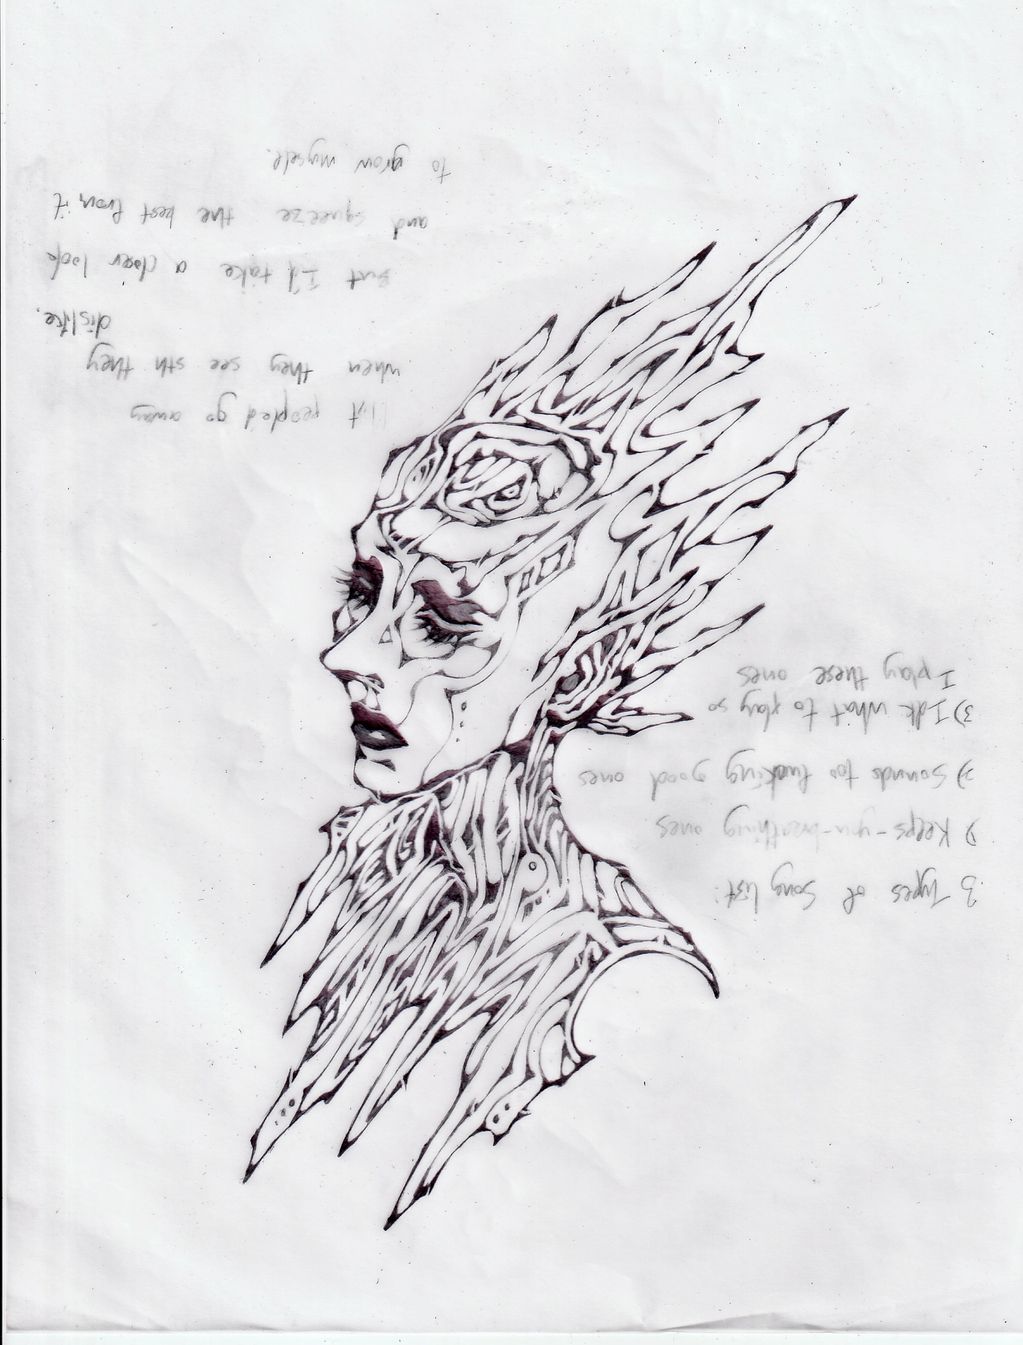 3 Types of Song list:
1) Keeps-you-breathing ones
2) Sounds too fucking good ones
3) Idk what to play so
I play these ones
peopled go away
when they see sth they
dislike.
But I'll take a closer look
and squeeze the best from it
to grow myself.